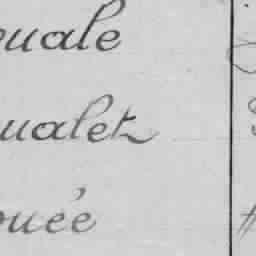 ouale
ualet
ouée